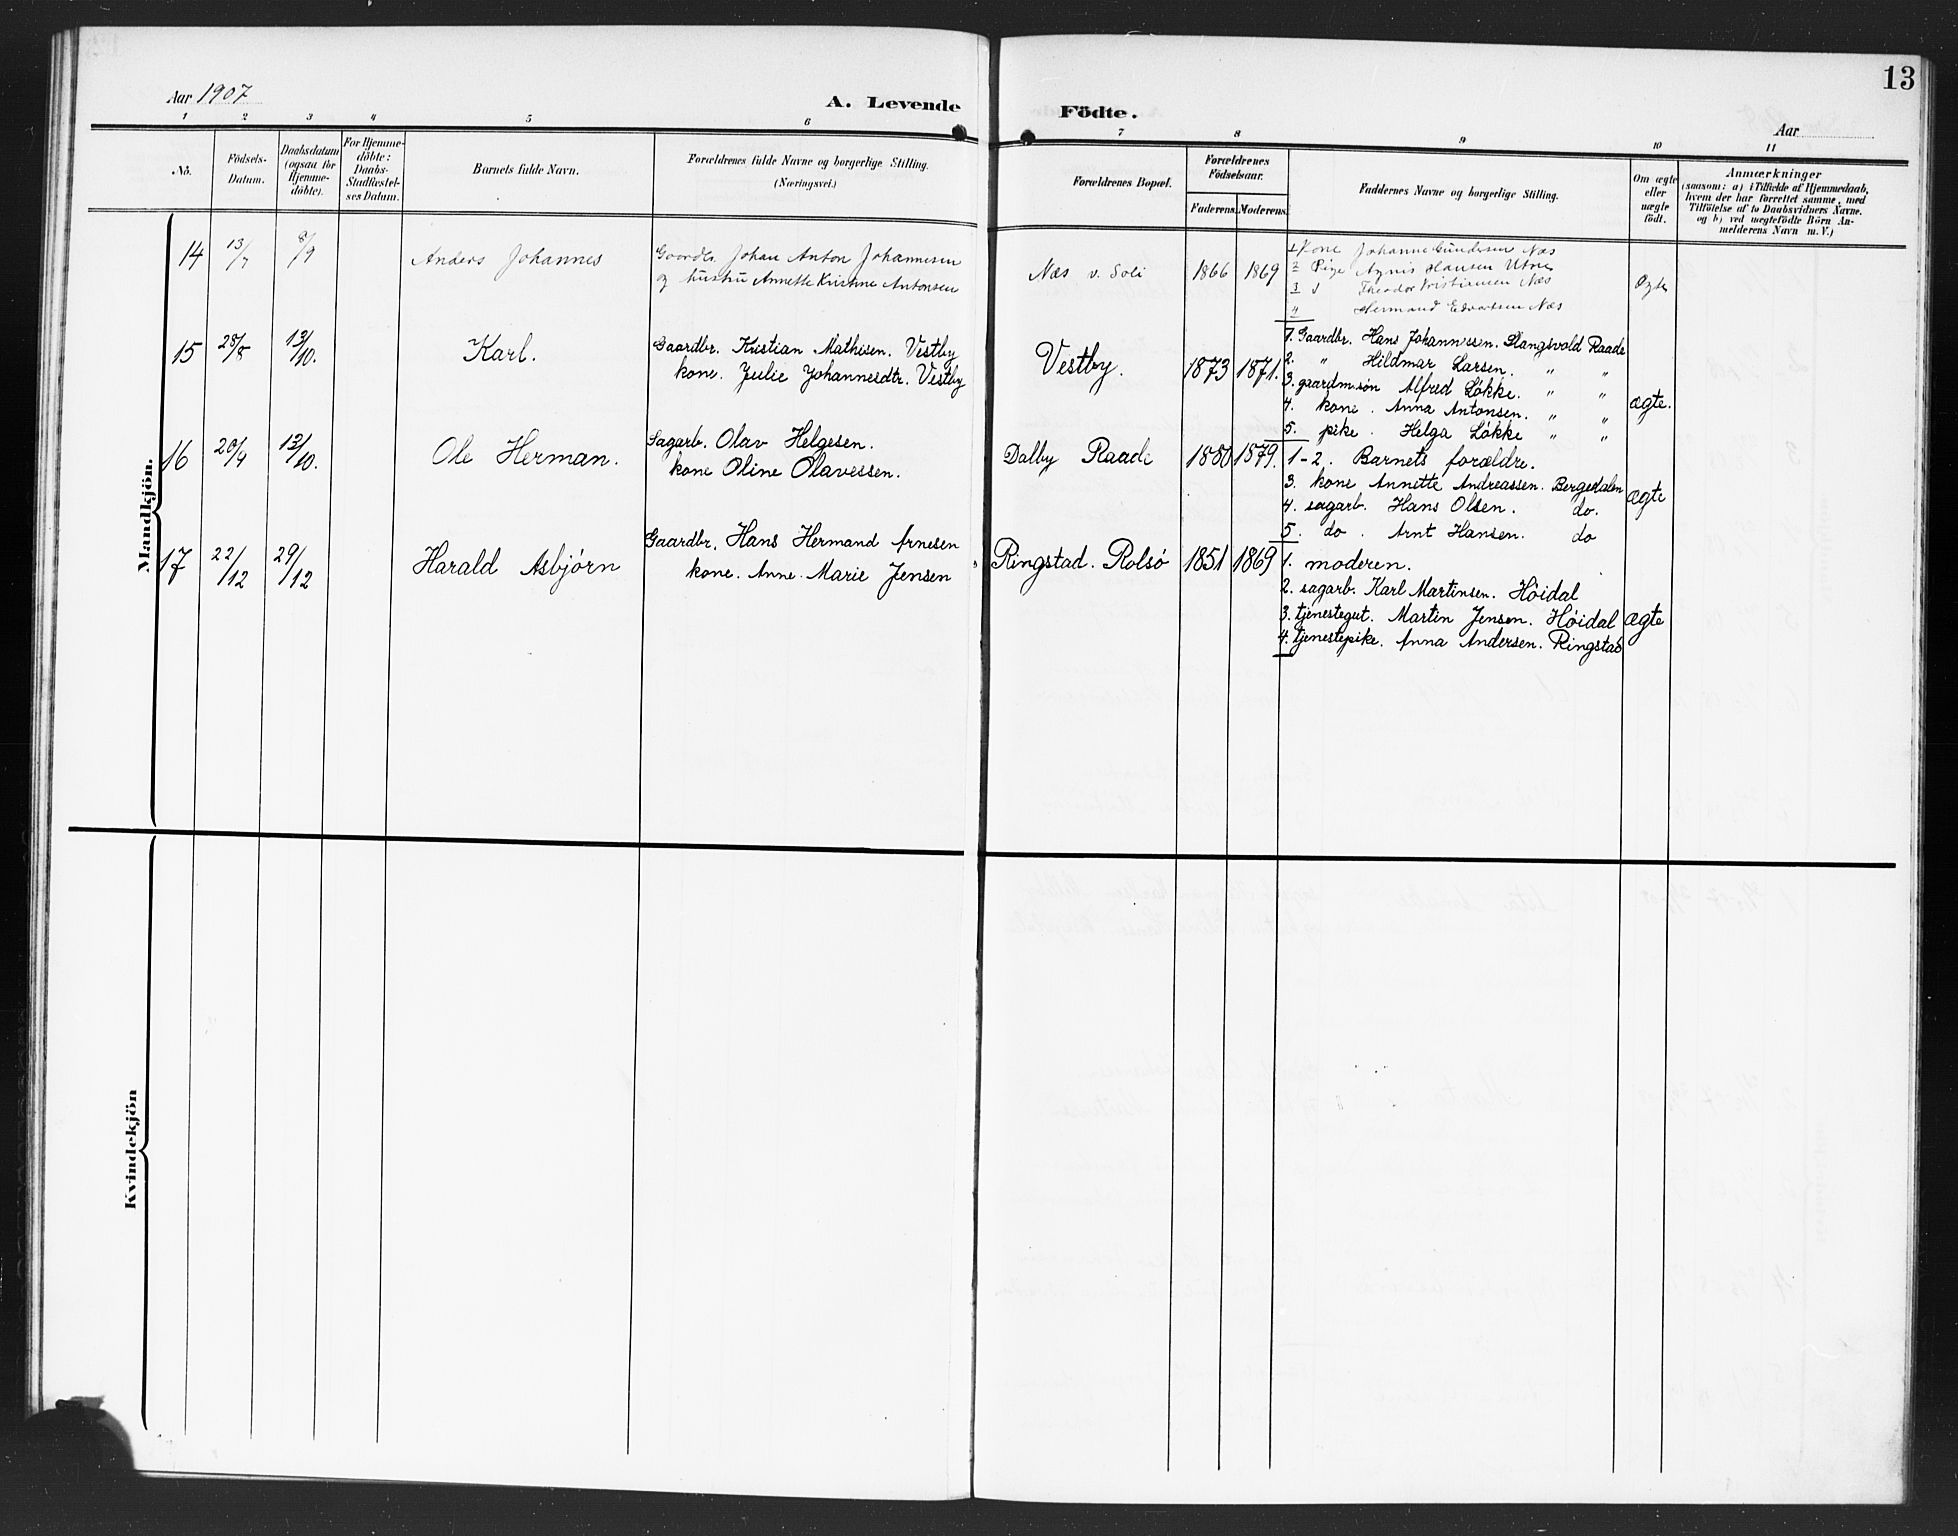 13
Aar 1907
A. Levende
Födte.
Aar
1 2 3 4 5 6
7 8 9 10 11
No.
Födsels-
Datum.
Daabsdatum
(ogsaa for
Hjemme-
döbte).
For Hjemme-
döbte:
Daabs-
Stadfæstel-
ses Datum.
Barnets fulde Navn.
Forældrenes fulde Navne og borgerlige Stilling.
(Næringsvei.)
Forældrenes Bopæl.
Forældrenes
Födselsaar.
Faderens. Moderens.
Faddernes Navne og borgerlige Stilling.
Om ægte
eller
uægte
födt.
Anmærkninger
(saasom: a) i Tilfælde af Hjemmedaab,
hvem der har forrettet samme, med
Tilföielse af to Daabsvidners Navne.
og b) ved uægtefödte Börn An-
melderens Navn m. V.)
Mandkjön.
14 13/7 8/9 Anders Johannes
Gaardbr. Johan Anton Johannesen
og hustru Annette Kristine Antonsen
Næs v. Soli 1866 1869
1 Kone Johanne Gundersen Næs
2 Pige Agnis Hansen Utne
3 Theodor Kristiansen Næs
4 Hermand Edvartsen Næs
Ægte
15 28/8 13/10. Karl.
Gaardbr. Kristian Mathisen. Vestby
kone. Julie Johannesdtr. Vestby
Vestby. 1873 1871.
1. Gaardbr. Hans Johannessen. Slangsvold Raade
2. " Hildmar Larsen. " "
3. gaardm.søn Alfred Løkke. " "
4. kone. Anna Antonsen. " "
5. pike. Helga Løkke " "
ægte.
16 20/9 13/10. Ole Herman.
Sagarb. Olav Helgesen.
kone Oline Olavessen.
Dalby Raade 1880 1879.
1-2. Barnets forældre.
3. kone Annette Andreassen. Bergedalen
4. sagarb. Hans Olsen. do.
5. do. Arnt Hansen. do
ægte
17 22/12 29/12 Harald Asbjørn
Gaardbr. Hans Hermand Arnesen
kone. Anne Marie Jensen
Ringstad. Rolsö 1851 1869
1. moderen.
2. sagarb. Karl Martinsen. Höidal
3. tjenestegut. Martin Jensen. Höidal
4. tjenestepike. Anna Andersen. Ringstad
ægte
Kvindekjön